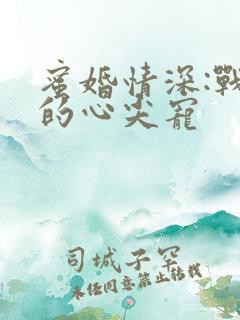 蜜婚情深:戰
的心尖寵
司城子空
未經同意禁止轉載